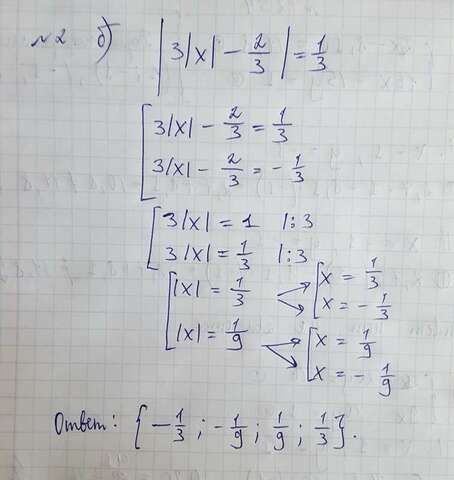 №2 б) |3|x| - 2/3| = 1/3
[3|x| - 2/3 = 1/3
3|x| - 2/3 = - 1/3
[3|x| = 1 |:3
3|x| = 1/3 |:3
[|x| = 1/3 → [x = 1/3
x = - 1/3
|x| = 1/9 → [x = 1/9
x = - 1/9
Ответ: {- 1/3 ; - 1/9 ; 1/9 ; 1/3}.